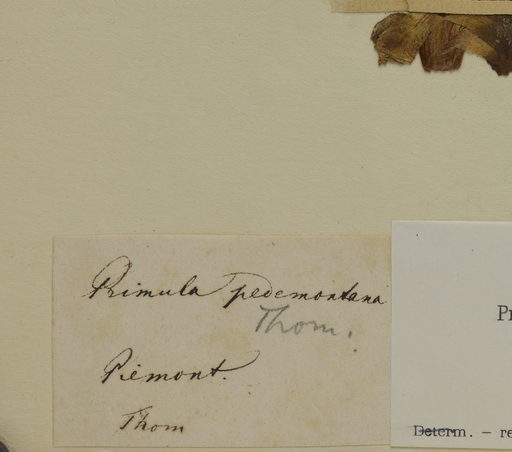 Primula pedemontana
Thom.
Piemont.
Thom
Pr
Determ. – re